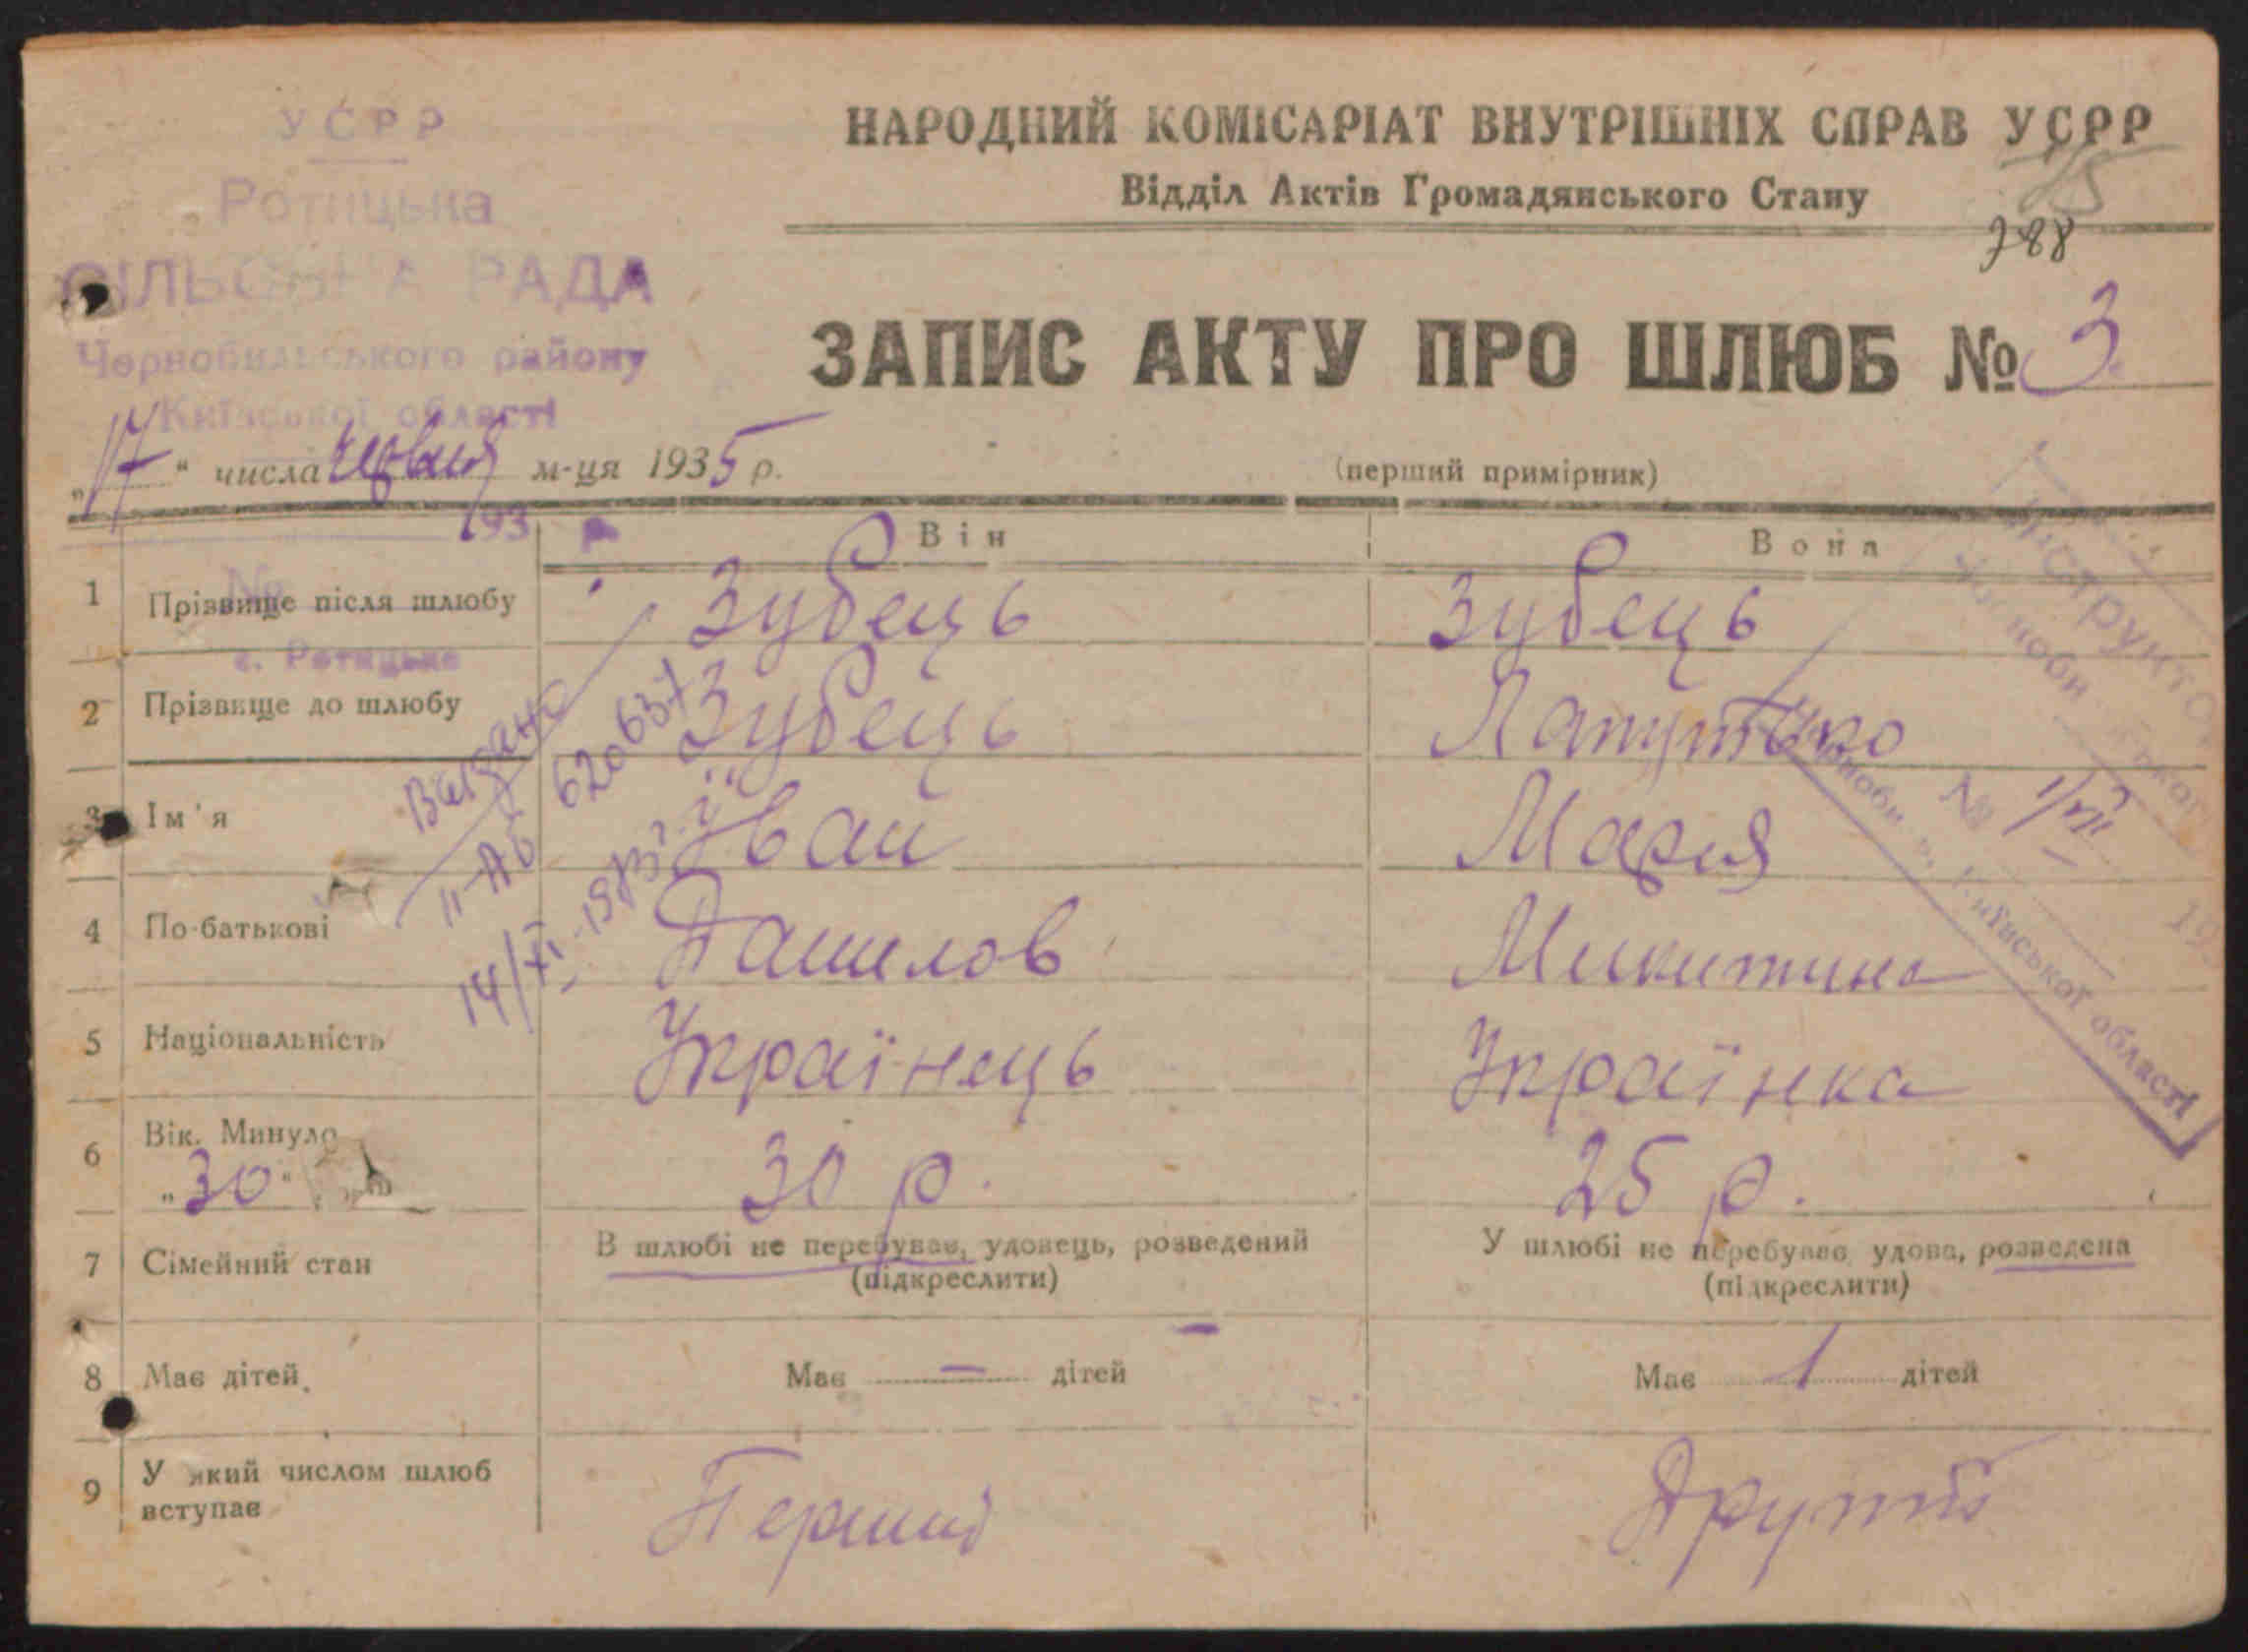 УСРР
Ротицька
СІЛЬСЬКА РАДА
Чорнобильського району
Київської області
НАРОДНИЙ КОМІСАРІАТ ВНУТРІШНІХ СПРАВ УСРР
Відділ Актів Громадянського Стану
15
788
ЗАПИС АКТУ ПРО ШЛЮБ № 3
„17“ числа червня м-ця 1935 р.
(перший примірник)
193
№
с. Ротицьке
Він Вона
1 Прізвище після шлюбу Зубець Зубець
2 Прізвище до шлюбу Зубець Лапутько
3 Ім'я Іван Мария
4 По-батькові Микитина
5 Національність Українець Українка
6 Вік. Минуло „30“ 30 р. 25 р.
7 Сімейний стан В шлюбі не перебував, удовець, розведений (підкреслити) У шлюбі не перебувала, удова, розведена (підкреслити)
8 Має дітей Має — дітей Має 1 дітей
9 У який числом шлюб вступає Перший Другий
Видано
II-АБ 620637
14/XI-1973 г.
Інструктор
№ 1/VII
Київської області